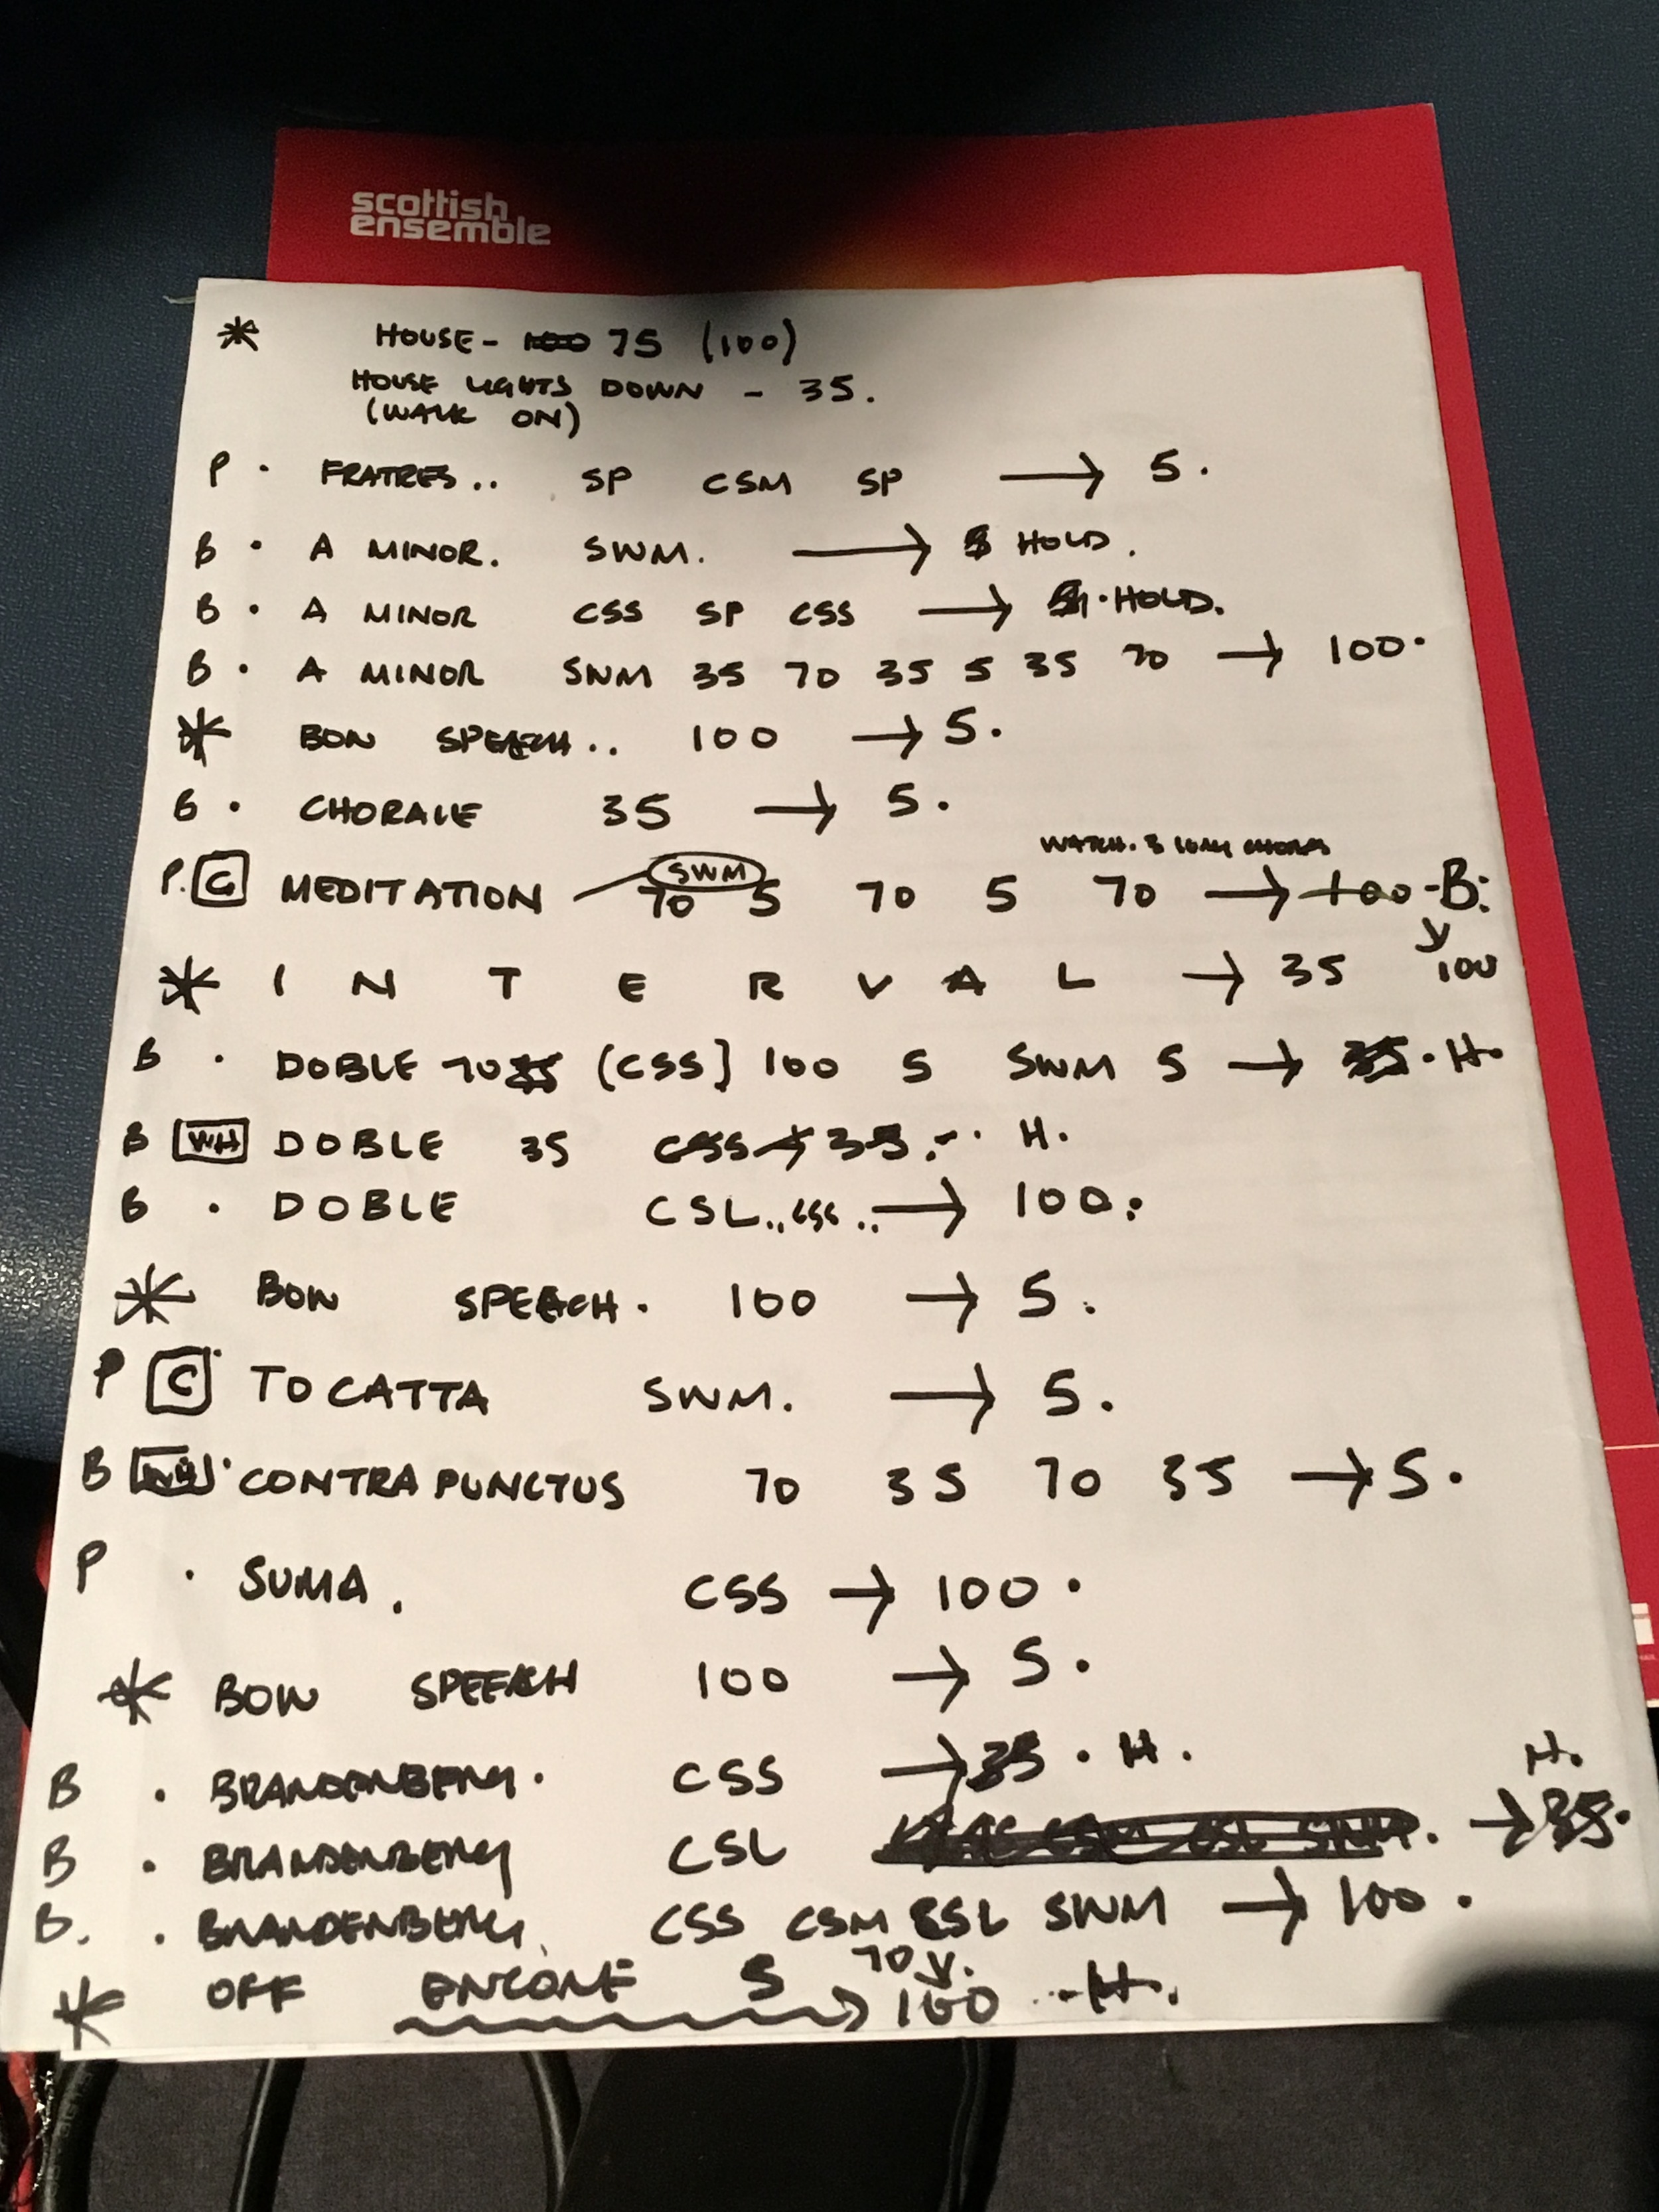 scottish
ensemble
* HOUSE - 100 75 (100)
HOUSE LIGHTS DOWN - 35.
(WALK ON)
P · FRATRES.. SP CSM SP → 5.
B · A MINOR. SWM. → HOLD.
B · A MINOR CSS SP CSS → · HOLD.
B · A MINOR SWM 35 70 35 5 35 70 → 100·
* BOW SPEECH.. 100 → 5.
B · CHORALE 35 → 5.
WATCH. 3 LONG CHORDS
P. C MEDITATION SWM 70 5 70 5 70 → 100 - B:
* INTERVAL → 35 100
B · DOBLE 70 35 (CSS) 100 5 SWM 5 → 35 · H·
B WH DOBLE 35 CSS → 35. H.
B · DOBLE CSL.. CSS .. → 100:
* BOW SPEECH. 100 → 5.
P C TOCATTA SWM. → 5.
B WH · CONTRAPUNCTUS 70 35 70 35 → 5.
P · SUMA. CSS → 100 ·
* BOW SPEECH 100 → 5.
B · BRANDENBERG. CSS → 35 · H.
B · BRANDENBERG CSL . → 35. H.
B. · BRANDENBERG CSS CSM CSL SWM → 100 .
* OFF ENCORE 5 → 70 100 ... H.